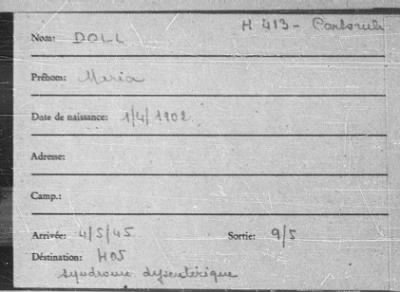 H 413 - Carlsruh
Nom: DOLL
Prénom: Maria
Date de naissance: 1/4/1902
Adresse:
Camp.:
Arrivée: 4/5/45 Sortie: 9/5
Déstination: H05
syndrome dysentérique